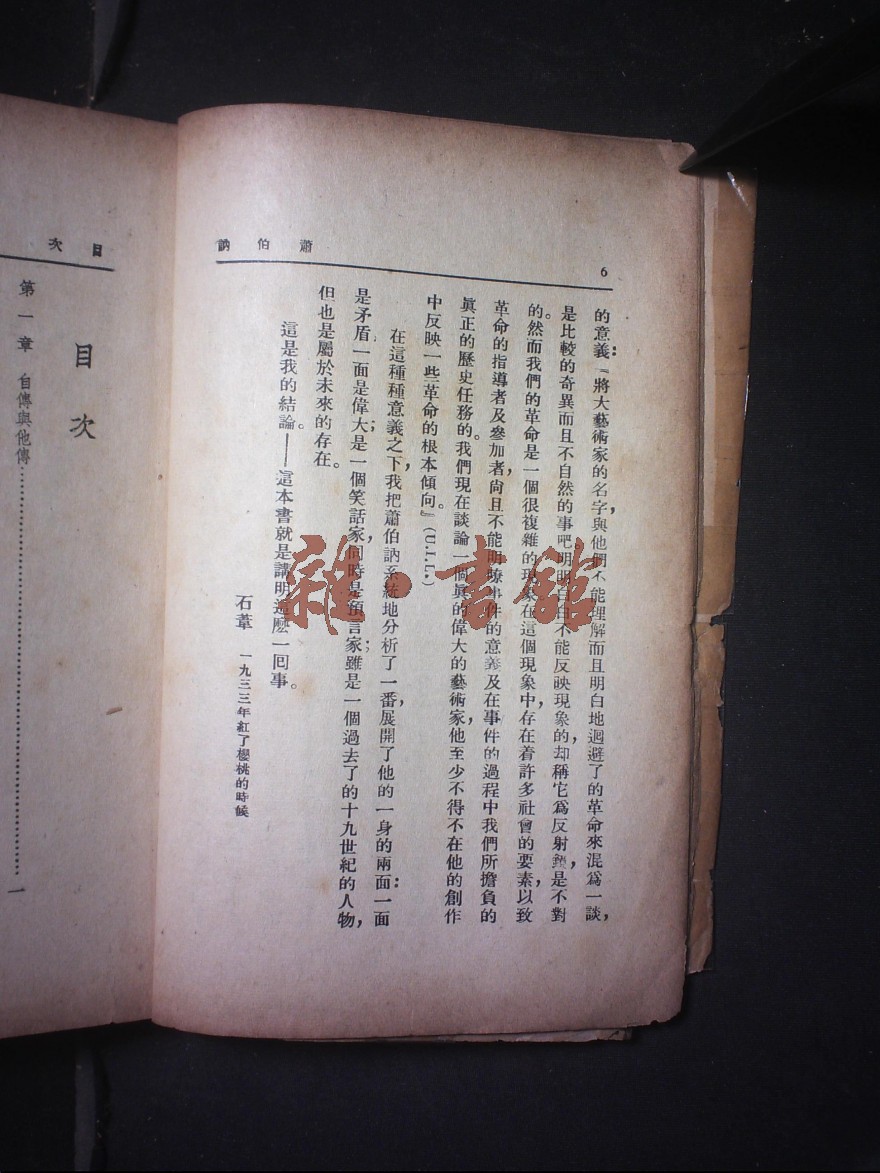 蕭伯訥
6
的意義：『將大藝術家的名字，與他們不能理解而且明白地迴避了的革命來混爲一談，
是比較的奇異而且不自然的事吧。明明白白不能反映現象的，却稱它爲反射鏡，是不對
的。然而我們的革命是一個很複雜的現象，在這個現象中，存在着許多社會的要素，以致
革命的指導者及參加者，尙且不能明瞭事件的意義及在事件的過程中我們所擔負的
眞正的歷史任務的。我們現在談論一個眞的偉大的藝術家，他至少不得不在他的創作
中反映一些革命的根本傾向。』(U.I.L.)
在這種種意義之下，我把蕭伯訥系統地分析了一番，展開了他的一身的兩面：一面
是矛盾，一面是偉大；是一個笑話家，同時是預言家；雖是一個過去了的十九世紀的人物，
但也是屬於未來的存在。
這是我的結論。——這本書就是講明這麽一回事。
石葦 一九三三年紅了櫻桃的時候
目次
目次
第一章 自傳與他傳……一
雜·書館